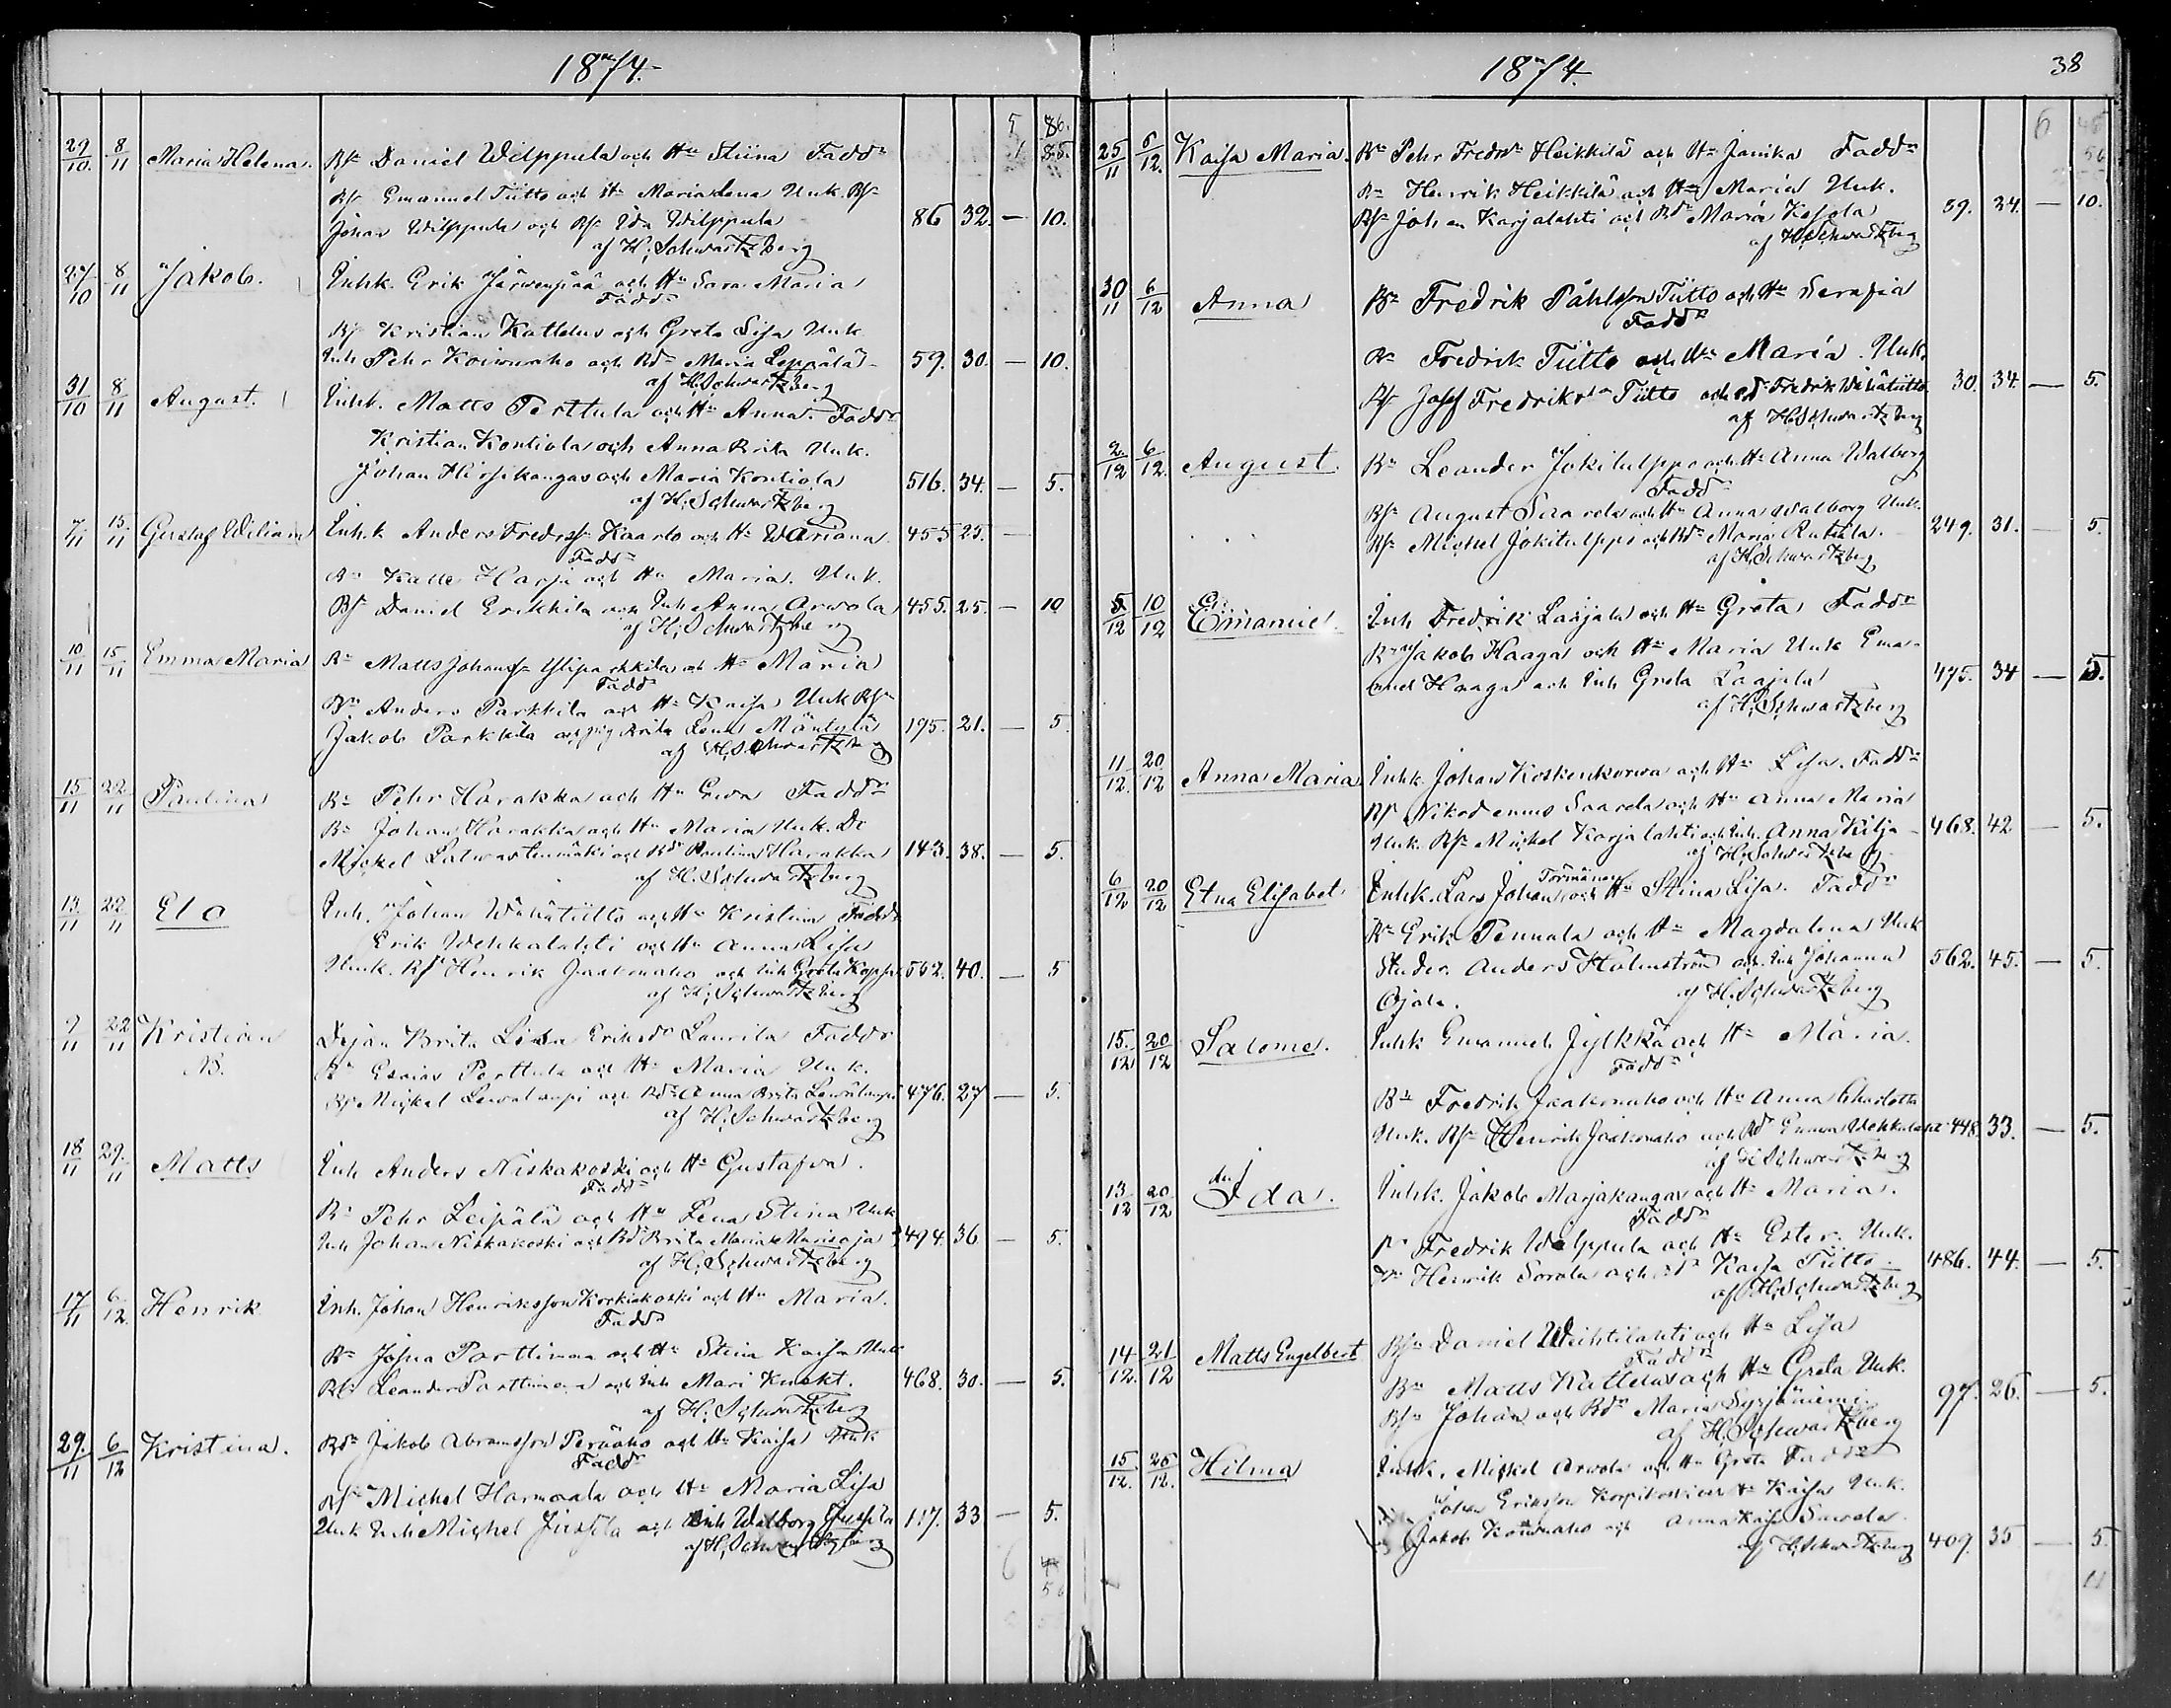 1874.
5 86.
29/10. 8/11 Maria Helena. Bs Daniel Wilppula och Hu Stiina Faddr
Bs Emanuel Tiitto och Hu Maria Lena Unk. Bs
Johan Wilppula och Bd Ida Wilppula 86 32. — 10.
af H. Schwartzberg
27/10 8/11 Jakob. Inhk. Erik Järwenpää och Hu Sara Maria
Faddr
Bs Kristian Kattelus och Greta Lisa Unk
Inh Pehr Koiwuaho och Bdr Maria Leppälä 59. 30. — 10.
af H. Schwartzberg
31/10 8/11 August. Inhk. Matts Perttula och Hu Anna. Faddr
Kristian Kontiola och Anna Brita Unk.
Johan Hirsikangas och Maria Kontiola 516. 34. — 5.
af H. Schwartzberg
7/11 15/11 Gustaf Wiliam Inh.k Anders Fredrss Kaarlo och Hu Mariana 455 25. —
Faddr
Bn Kalle Harju och Hu Maria. Unk.
Bs Daniel Erikkila och Inh Anna Arwola 455. 25. — 10
af H. Schwartzberg
10/11 15/11 Emma Maria Bn Matts Johanss Yliparkkila och Hu Maria
Faddr
Bn Anders Parkkila och Hu Kaisa Unk Bs
Jakob Parkkila och pig Brita Lena Mäntylä 195. 21. — 5.
af H. Schwartzberg
15/11 22/11 Paulina Bn Pehr Harakka och Hu Ewa Faddr
Bn Johan Harakka och Hu Maria Unk. Dr
Mickel Latwastenmäki och Bdr Paulina Harakka 143. 38. — 5.
af H. Schwartzberg
13/11 22/11 Ela Inh. Johan Wähätiitto och Hu Kristina Faddr
Erik Wehkalahti och Hu Anna Lisa
Unk. Bs Henrik Jaakonaho och Inh Greta Koppe 552. 40. — 5
af H. Schwartzberg
9/11 22/11 Kristian Dejan Brita Lisa Eriksdr Laurila Faddr
N. Bn Esaias Perttula och Hu Maria Unk.
Bs Mickel Lewalampi och Bdr Anna Brita Lewälampi 476. 27 — 5.
af H. Schwartzberg
18/11 29/11 Matts Inh Anders Niskakoski och Hu Gustafva.
Faddr
Bn Pehr Leipälä och Hu Lena Stina Unk
Inh Johan Niskakoski och Bdr Brita Maria Marinoja 494. 36 — 5.
af H. Schwartzberg
17/11 6/12. Henrik Inh. Johan Henriksson Korkiakoski och Hu Maria.
Faddr
Bn Josua Parttimaa och Hu Stina Kaisa Unk
Bs Leander Parttimaa och Inh Mari Knekt. 468. 30. — 5.
af H. Schwartzberg
29/11 6/12 Kristina. Bdn Jakob Abramsson Peräaho och Hu Kaisa Unk
Faddr
Bs Michel Harmaala och Hu Maria Lisa
Unk Inh Michel Jussila och Inh Walborg Jussila 117. 33 — 5.
af H. Schwartzberg
6 56
1874. 38
6
25/11 6/12. Kaisa Maria. Bn Pehr Fredrs Heikkilä och Hu Janika Faddr
Bn Henrik Heikkilä och Hu Maria Unk.
Bs Johan Karjalahti och Bdr Maria Kesola 39. 34. — 10.
af H. Schwartzberg
30/11 6/12 Anna Bn Fredrik Påhlsson Tiitto och Hu Serafia
Faddr
Bn Fredrik Tiitto och Hu Maria. Unk.
Bs Josef Fredriks Tiitto och Bdr Fredrik Wähätiitto 30. 34. — 5.
af H. Schwartzberg
2/12 6/12. August. Bn Leander Jokitulppo och Hu Anna Walborg
Faddr
Bs August Saarela och Hu Anna Walborg Unk.
Bs Michel Jokitulppo och Bdr Maria Rutula. 249. 31. — 5
af H. Schwartzberg
5/12 10/12 Emanuel. Inh Fredrik Laajala och Hu Greta Faddr
Bn Jakob Haaga och Hu Maria Unk Ema-
nuel Haaga och Inh Greta Laajala 475. 34 — 5.
af H. Schwartzberg
11/12. 20/12 Anna Maria Inhk. Johan Koskenkorwa och Hu Lisa. Faddr
Bs Nikodemus Saarela och Hu Anna Maria
Unk. Bs Michel Karjalahti och Inh. Anna Kilja 468. 42 — 5.
af H. Schwartzberg
6/12 20/12 Etna Elisabet Inhk. Lars Johan Törmänen och Hu Stina Lisa. Faddr
Bn Erik Pennala och Hu Magdalena Unk
Studer. Anders Holmström och Inh Johanna 562. 45. — 5.
Ojala. af H. Schwartzberg
15./12 20/12 Salome. Inhk Emanuel Jylkkä och Hu Maria.
Faddr
Bn Fredrik Jaakonaho och Hu Anna Charlotta
Unk. Bs Henrik Jaakonaho och Bd Emma Wehkalahti 448. 33. — 5.
af H. Schwartzberg
13/12 20/12 Ida. Inhk. Jakob Marjakangas och Hu Maria.
Faddr
Fredrik Wilppula och Hu Ester. Unk.
Henrik Sorola och Kaisa Tiitto. 486. 44. — 5.
af H. Schwartzberg
14/12. 21/12 Matts Engelbert Bs Daniel Weihtilahti och Hu Lisa
Faddr
Bn Matts Kattelus och Hu Greta Unk.
Bs Johan och Bdr Maria Syrjäniemi. 97. 26. — 5.
af H. Schwartzberg
15/12. 25/12. Hilma Inhk. Mickel Arwola och Hu Greta Faddr
Johan Eriksson Korpikoski och Hu Kaisa Unk.
Jakob Koiwuaho och Anna Kaisa Saarela.
af H. Schwartzberg 409. 35 — 5.